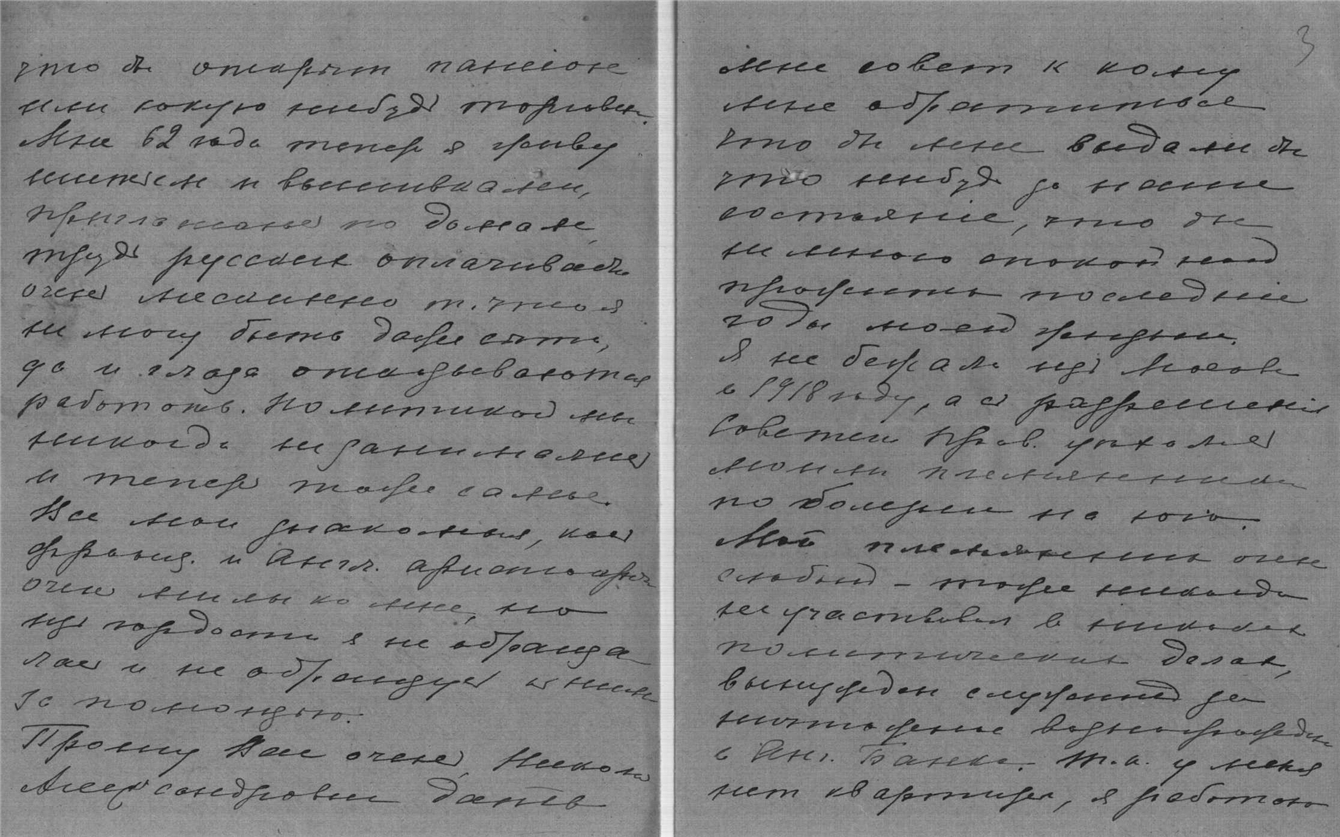 что бы открыть пансион
или какую нибудь торговлю.
Мне 62 года теперь я живу
шитьем и вышивками,
по домам,
труд русских оплачивають
очень мескинно т. что я
не могу быть даже сыта,
да и глаза отказываются
работать. Политикой мы
никогда не занимались
и теперь тоже самое.
Все мои знакомыя, как
франц. и Англ. аристократы
очень милы ко мне, но
из гордости я не обраща
лась и не обращусь к ним
за помощью.
Прошу Вас очень, Николай
Александрович дать
3
мне совет к кому
мне обратиться
что бы мне выдали бы
что нибудь за наше
состояние, что бы
немного спокойней
прожить последние
годы моей жизни.
Я не бежала из Москвы
в 1918 году, а с разрешения
Советск Прав. уехала с
моими племянником
по болезни на юг.
Мой племянник очень
слабый – тоже никогда
не участвовал в никаких
политических делах,
вынужден службой за
ничтожное вознагражден
в Анг. Банке. Т.к. у меня
нет квартиры, я работаю